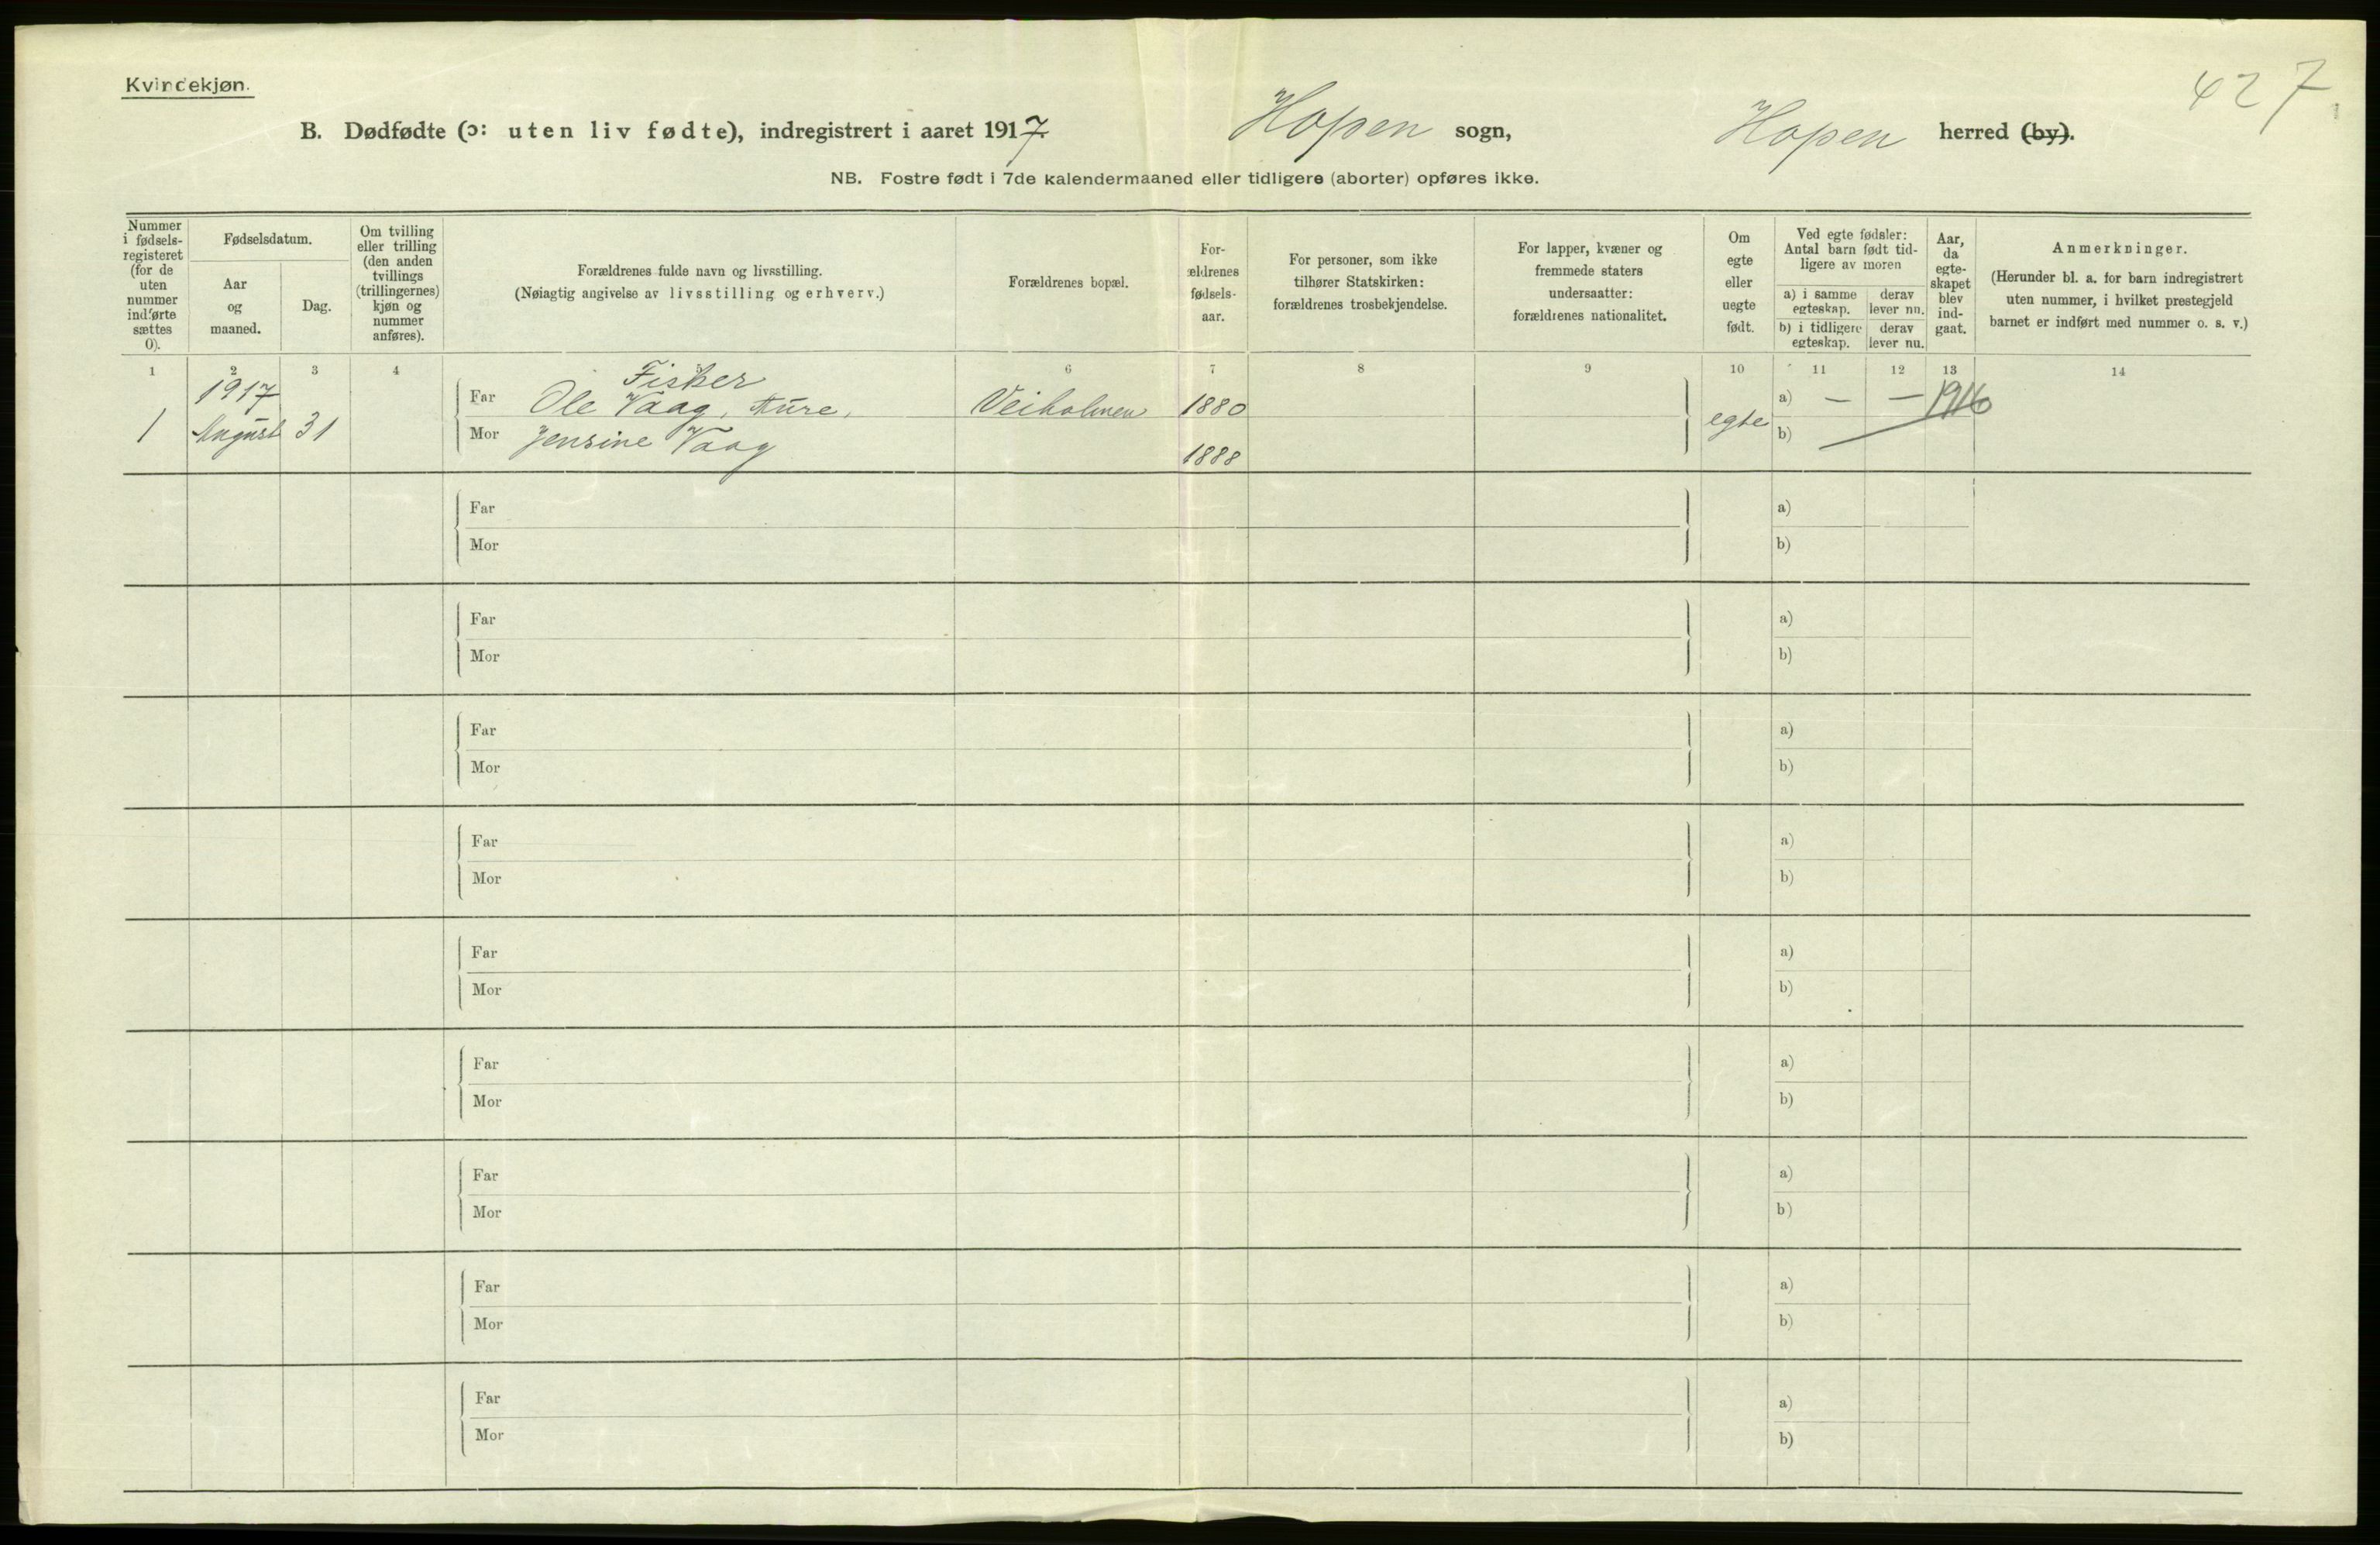 Kvindekjøn.
427
B. Dødfødte (ɔ: uten liv fødte), indregistrert i aaret 1917 Hopen sogn, Hopen herred (by).
NB. Fostre født i 7de kalendermaaned eller tidligere (aborter) opføres ikke.
Nummer
i fødsels-
registeret
(for de
uten
nummer
indførte
sættes
0).
Fødselsdatum.
Aar
og
maaned.
Dag.
Om tvilling
eller trilling
(den anden
tvillings
(trillingernes)
kjøn og
nummer
anføres).
Forældrenes fulde navn og livsstilling.
(Nøiagtig angivelse av livsstilling og erhverv.)
Forældrenes bopæl.
For-
ældrenes
fødsels-
aar.
For personer, som ikke
tilhører Statskirken:
forældrenes trosbekjendelse.
For lapper, kvæner og
fremmede staters
undersaatter:
forældrenes nationalitet.
Om
egte
eller
uegte
født.
Ved egte fødsler:
Antal barn født tid-
ligere av moren
a) i samme
egteskap.
derav
lever nu.
b) i tidligere
egteskap.
derav
lever nu.
Aar,
da
egte-
skapet
blev
ind-
gaat.
Anmerkninger.
(Herunder bl. a. for barn indregistrert
uten nummer, i hvilket prestegjeld
barnet er indført med nummer o. s. v.)
1 2 3 4 6 7 8 9 10 11 12 13 14
1917 Fisker
Far Ole Vaag, Aure, Veiholmen 1880 a) — — 1916
1 August 31 Mor Jensine Vaag 1888 egte b)
Far a)
Mor b)
Far a)
Mor b)
Far a)
Mor b)
Far a)
Mor b)
Far a)
Mor b)
Far a)
Mor b)
Far a)
Mor b)
Far a)
Mor b)
Far a)
Mor b)